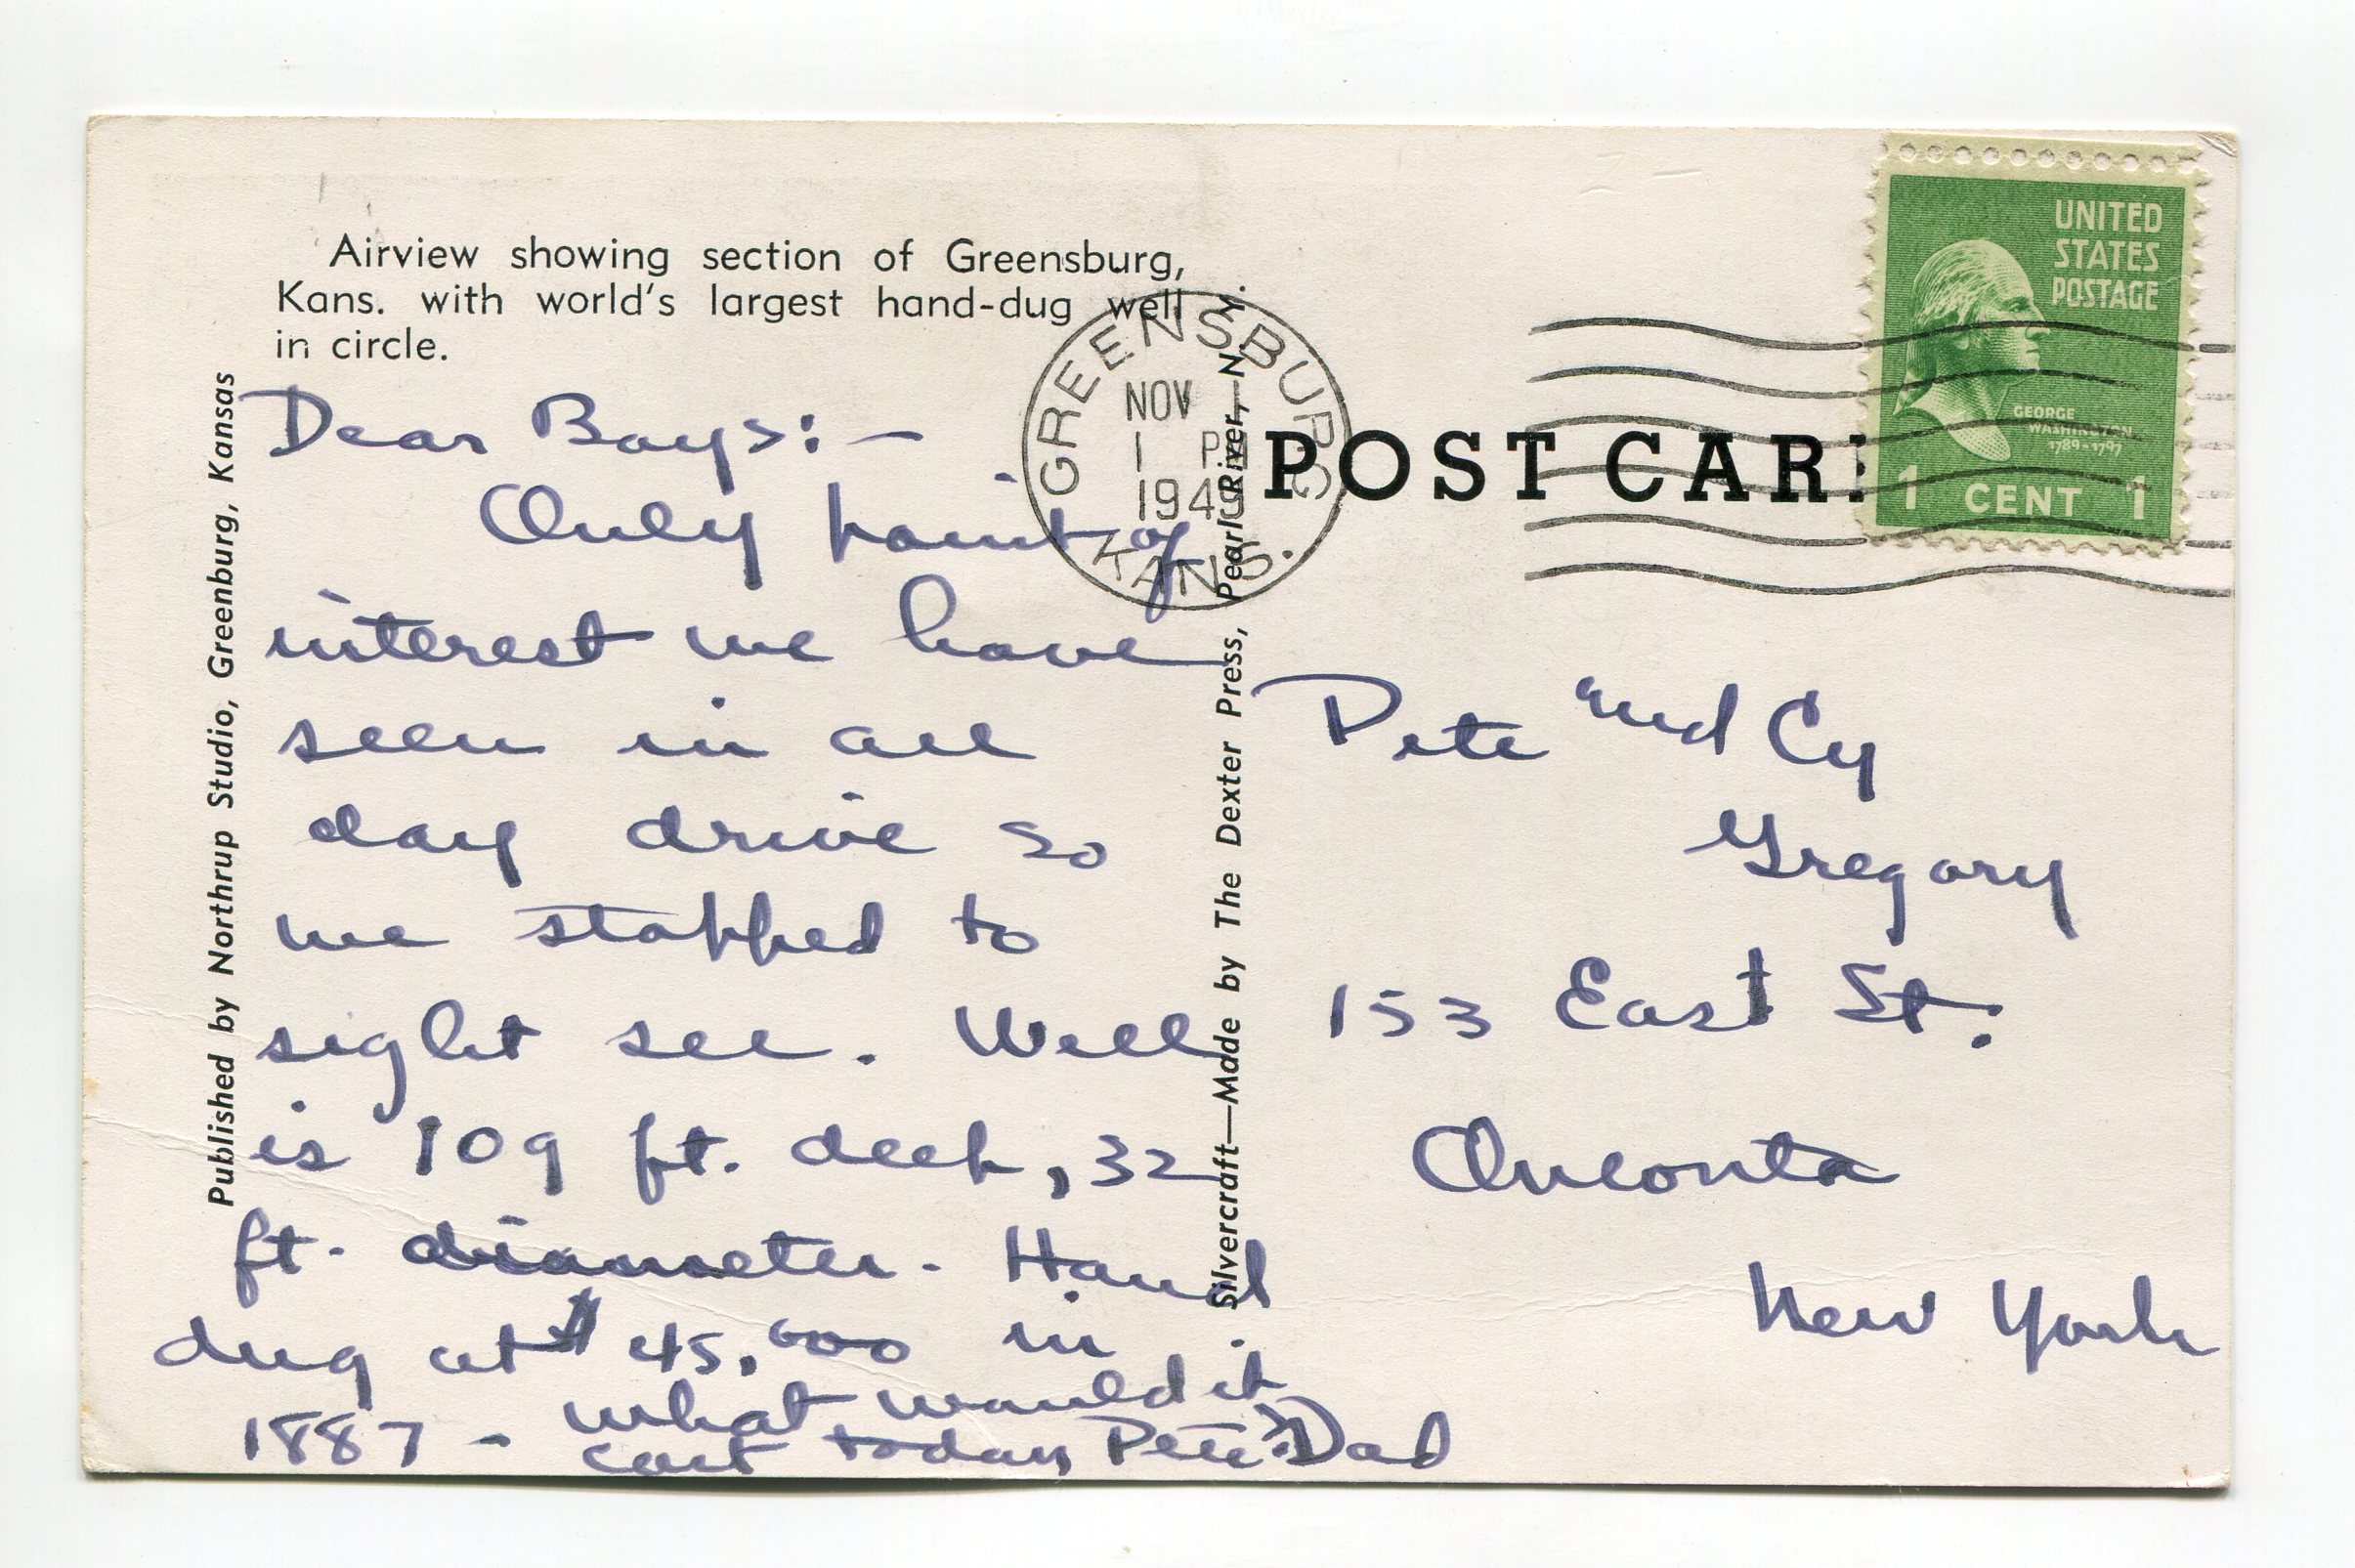 Airview showing section of Greensburg,
Kans. with world's largest hand-dug well
in circle.
Published by Northrup Studio, Greenburg, Kansas
Dear Boys:—
Only point of
interest we have
seen in all
day drive so
we stopped to
sight see. Well
is 109 ft. deep, 32
ft. diameter. Hand
dug at $45,000 in
1887 - what would it
cost today Pete? Dad
Silvercraft—Made by The Dexter Press, Pearl River, N. Y.
GREENSBURG
NOV
1 P.M
1949
KANS.
POST CAR
UNITED
STATES
POSTAGE
GEORGE
WASHINGTON
1789-1797
1 CENT 1
Pete and Cy
Gregory
153 East St.
Oneonta
New York